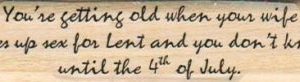 You're getting old when your wife
es up sex for Lent and you don't k
until the 4th of July.